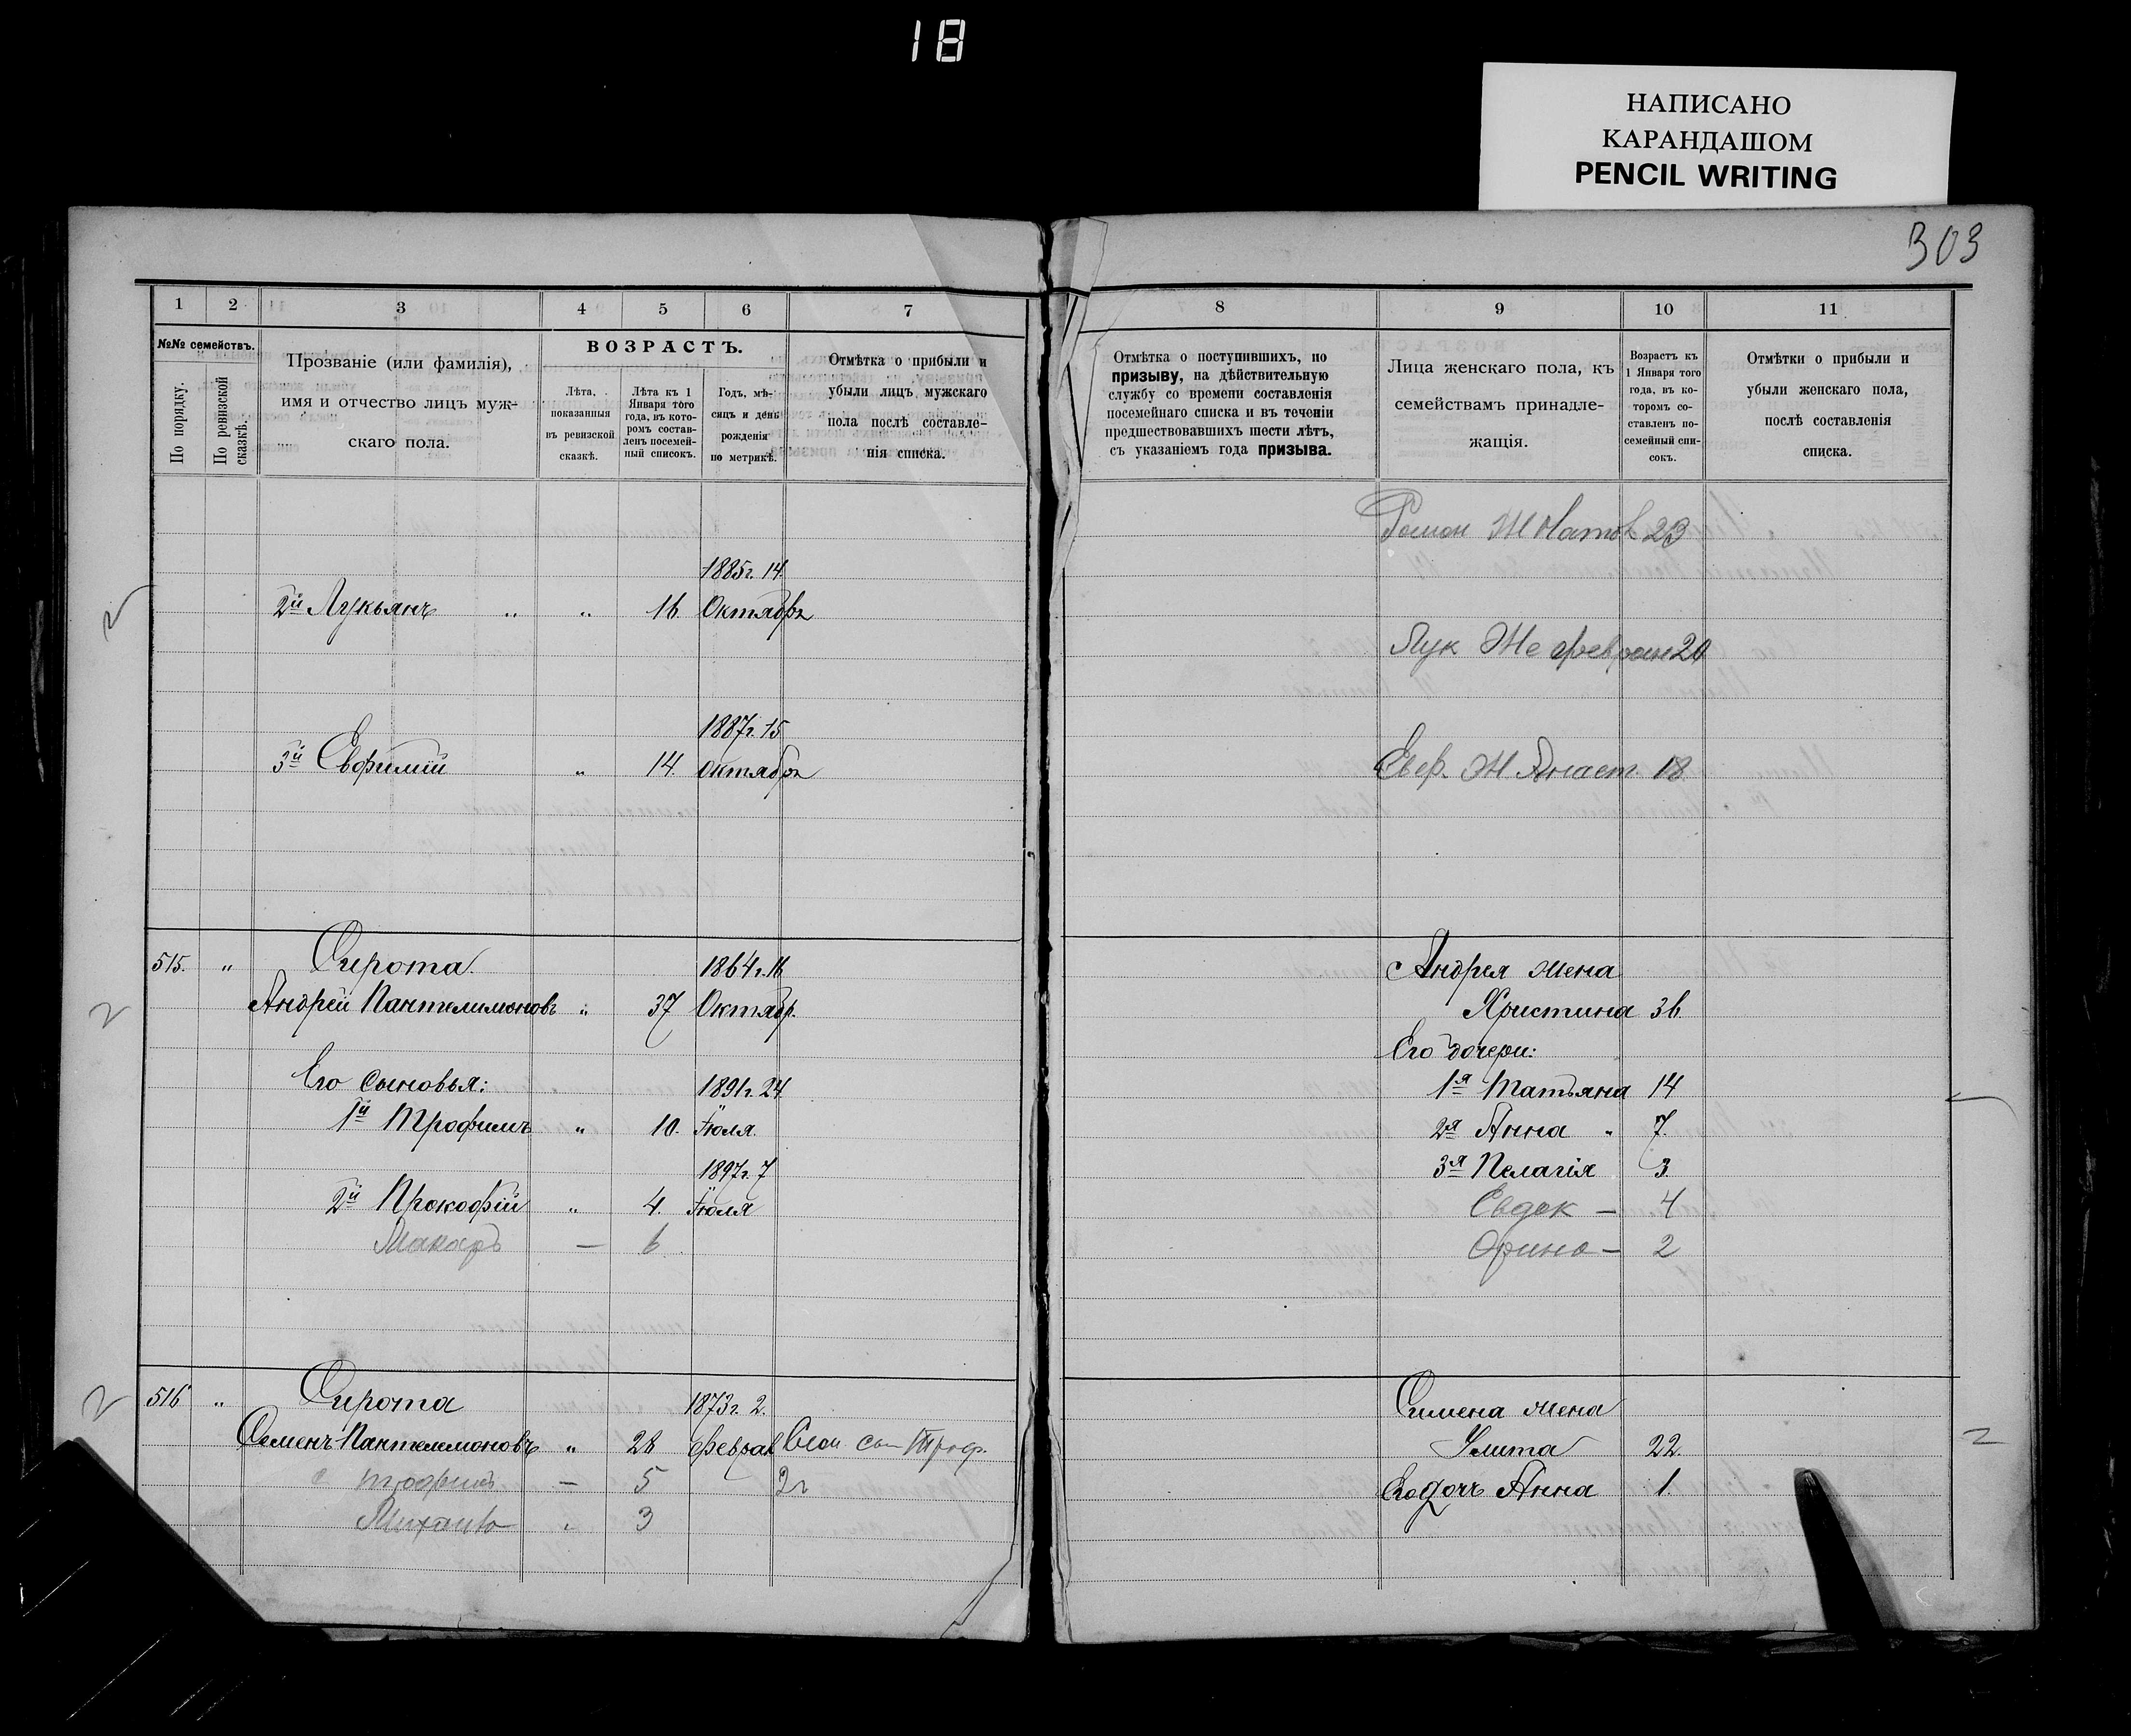 18
НАПИСАНО
КАРАНДАШОМ
PENCIL WRITING
303
1 2 3 4 5 6 7
№№ семействъ.
По порядку.
По ревизской сказкѣ.
Прозваніе (или фамилія),
имя и отчество лицъ муж-
скаго пола.
ВОЗРАСТЪ.
Лѣта,
показанныя
въ ревизской
сказкѣ.
Лѣта къ 1
Января того
года, въ кото-
ромъ состав-
ленъ посемей-
ный списокъ.
Годъ, мѣ-
сяцъ и день
рожденія
по метрикѣ.
Отмѣтка о прибыли и
убыли лицъ мужскаго
пола послѣ составле-
нія списка.
1885г. 14
2й Лукьянъ " " 16 Октября
1887г. 15
3й Евфимій " 14. октября
515. " Сирота. 1864г. 16
Андрей Пантелимоновъ " 37 Октябр.
Его сыновья: 1891г. 24
1й Трофимъ " 10. Іюля.
1897г. 7
2й Прокофій " 4. Іюля
Макаръ — 6
516 " Сирота 1873г. 2.
Семенъ Пантелемоновъ " 28 феврал
Трофимъ — 5 2г
Михаилъ " 3
8 9 10 11
Отмѣтка о поступившихъ, по
призыву, на дѣйствительную
службу со времени составленія
посемейнаго списка и въ теченіи
предшествовавшихъ шести лѣтъ,
съ указаніемъ года призыва.
Лица женскаго пола, къ
семействамъ принадле-
жащія.
Возрастъ къ
1 Января того
года, въ ко-
торомъ со-
ставленъ по-
семейный спи-
сокъ.
Отмѣтки о прибыли и
убыли женскаго пола,
послѣ составленія
списка.
23
Лук Же 20
Ж Анаст. 18
Андрея жена
Христина 36.
Его дочери:
1я Татьяна 14
2я Анна " 7.
3я Пелагія 3
Евдок — 4
Орина — 2
Симена жена
Улита 22.
Его дочь Анна 1.